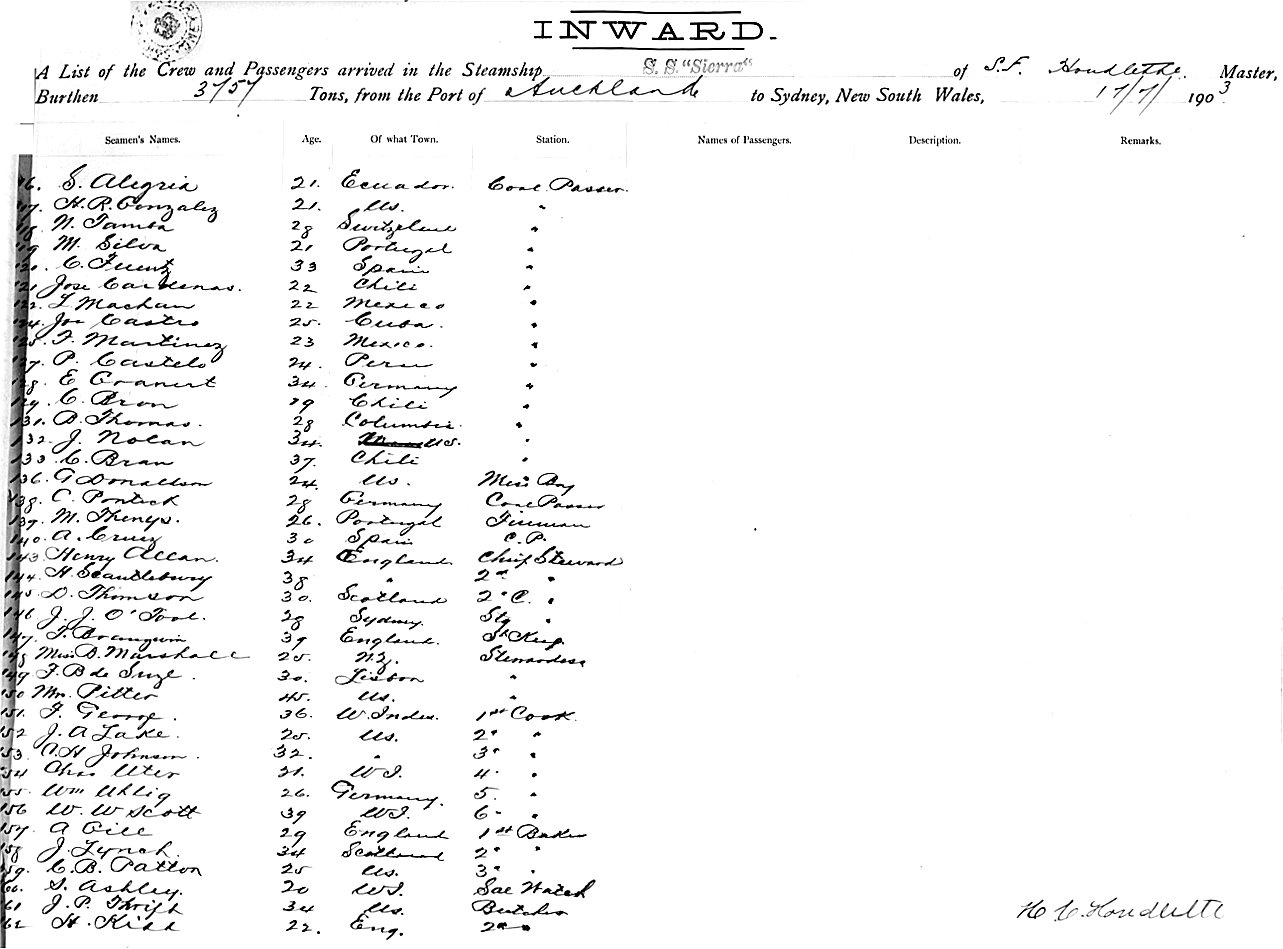 INWARD.
A List of the Crew and Passengers arrived in the Steamship S. S. "Sierra" of S.F. Houdlette. Master,
Burthen 3757 Tons, from the Port of Auckland to Sydney, New South Wales, 17/7/ 1903
Seamen's Names. Age. Of what Town. Station. Names of Passengers. Description. Remarks.
16. S. Alegria 21. Ecuador. Coal Passer.
17. H. R. Gonzalez 21. Us. "
18. N. Tamba 28 Switzeland "
19 M. Silva 21 Portugal "
120. C. Fuentz 33 Spain "
121 Jose Cardenas. 22 Chili "
122. L Machan 22 Mexico "
124. Joe Castro 25. Cuba. "
125. F. Martinez 23 Mexico. "
127. P. Castelo 24. Peru "
128. E Cranert 34. Germany "
129. C. Bron 29 Chili "
131. B. Thomas. 28 Columbia. "
132. J. Nolan 34. U.S. "
133 C. Bran 37. Chili "
136. G Donaldson 24. Us. Mess Boy
138. C. Pontick 28 Germany Coal Passer
139. M. Thenys. 26. Portugal Fireman
140. A. Cruz 30 Spain C. P.
143. Henry Allan. 34 England Chief Steward
144. H. Scantlebury 38 " 2nd "
145 D. Thomson 30. Scotland 2" C. "
146 J. J. O'Tool. 28 Sydney. Stg "
147. F. Brangwin 39 England. St Keep
148 Miss D. Marshall 25. N.Z. Stewardess
149 F. B de Suze. 30. Lisbon "
150 Mrs. Pitter 45. Us. "
151. F. George. 36. W. Indes. 1st Cook.
152 J. A Lake. 25. Us. 2" "
153 C. H Johnson. 32. " 3" "
154 Chas Uter 21. W I. 4. "
155. Wm Uhlig 26. Germany. 5. "
156 W. W Scott 39 W I. 6" "
157. A Gill 29 England 1st Baker
158 J. Lynch. 34 Scotland 2" "
159. C. B. Patton 25 Us. 3" "
60. S. Ashley. 20 W I. Watch
61 J. P. Thrift 34 Us. Butcher
62 H. Kidd 22. Eng. 2" "
H C. Houdlette